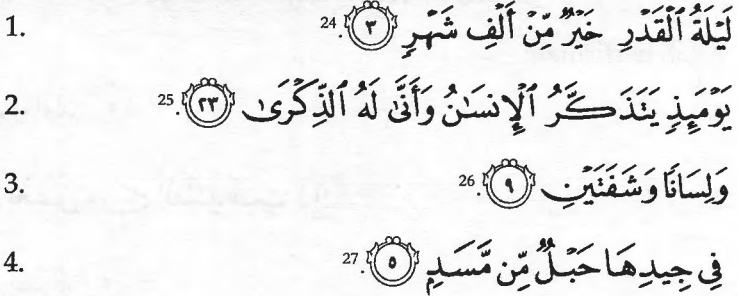 1. لَيْلَةُ ٱلْقَدْرِ خَيْرٌ مِّنْ أَلْفِ شَهْرٍ ﴿٣﴾ .24
2. يَوْمَئِذٍ يَتَذَكَّرُ ٱلْإِنسَـٰنُ وَأَنَّىٰ لَهُ ٱلذِّكْرَىٰ ﴿٢٣﴾ .25
3. وَلِسَانًا وَشَفَتَيْنِ ﴿٩﴾ .26
4. فِى جِيدِهَا حَبْلٌ مِّن مَّسَدٍ ﴿٥﴾ .27